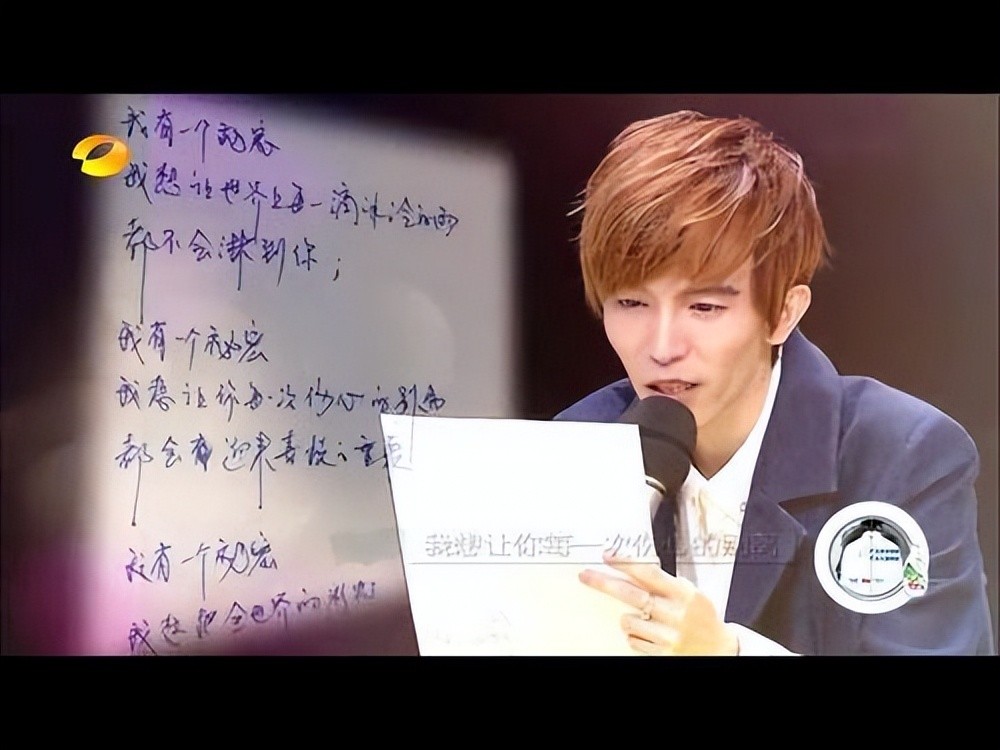 我有一个秘密
我想让世界上每一滴冰冷的雨
都不会淋到你；
我有一个秘密
我想让你每一次伤心的别离
都会有迎来喜悦之重逢
我有一个秘密
我想把全世界的
我想让你每一次伤心的别离